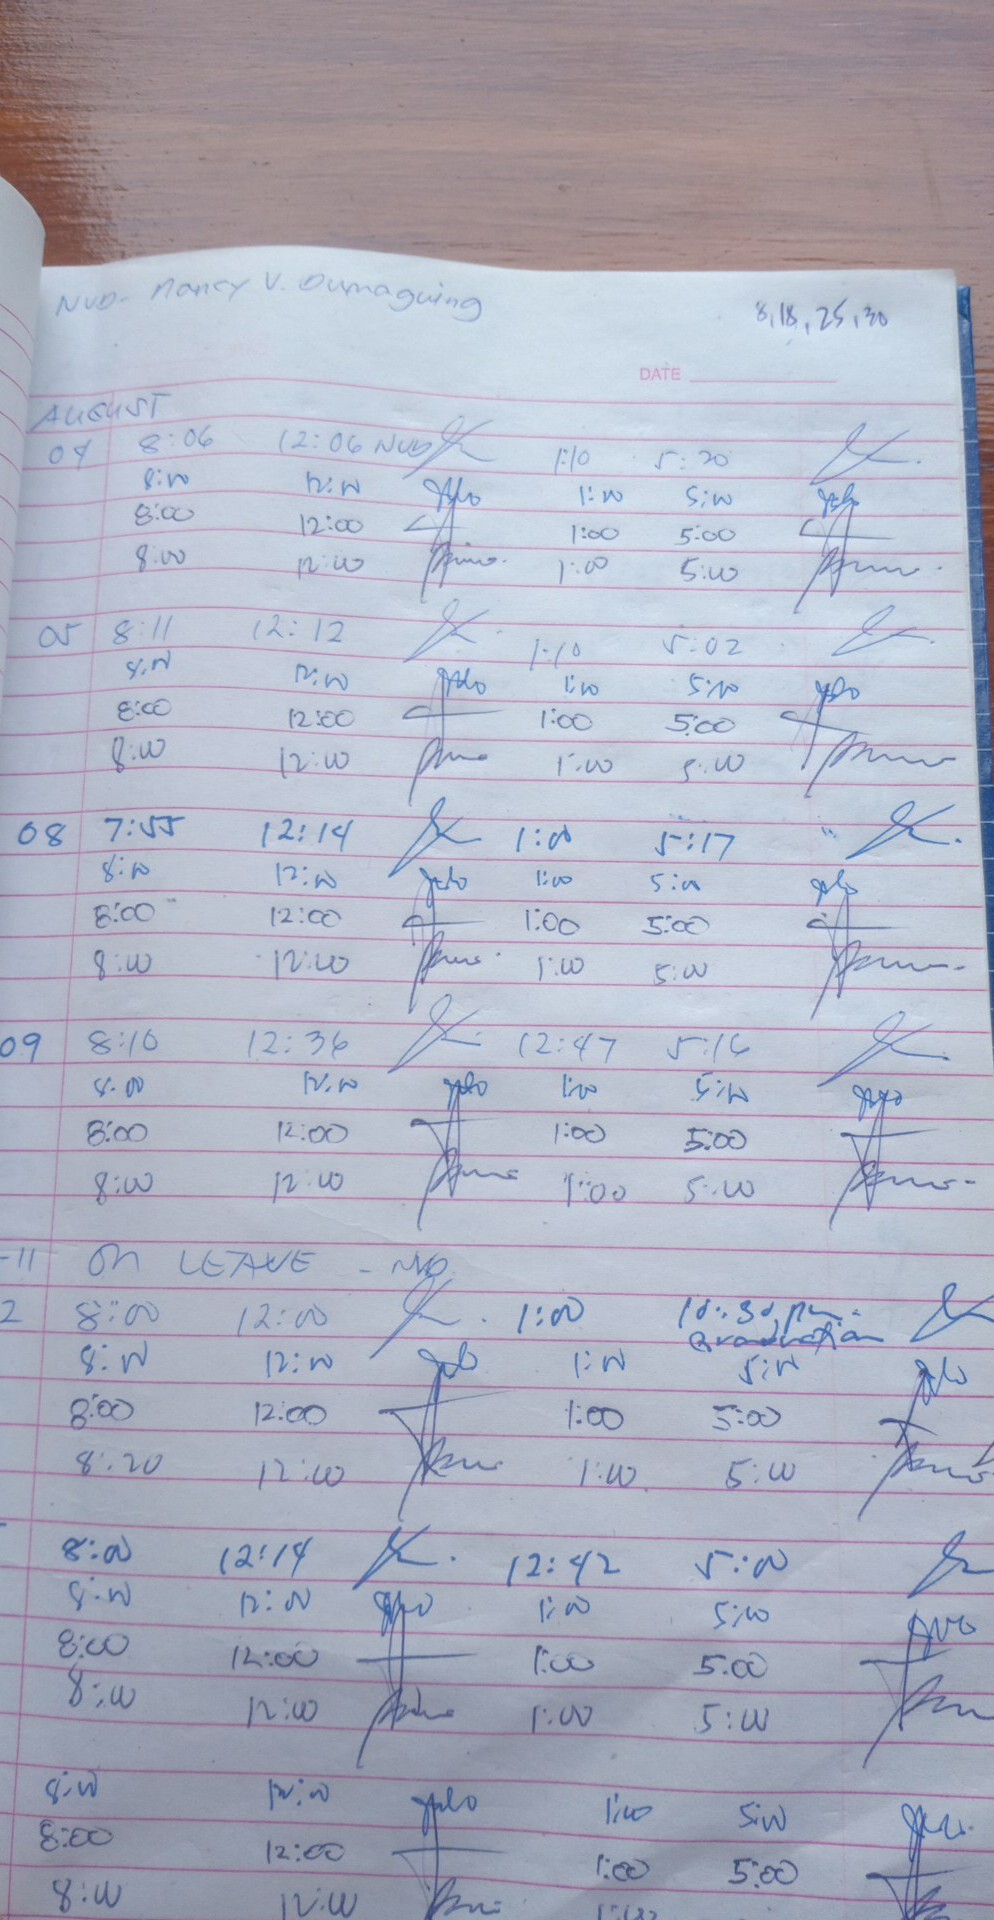 NVD- Nancy V. Dumaguing
8,18,25,30
DATE
AUGUST
04 8:06 12:06 NVD 1:10 5:20
8:00 12:00 1:00 5:00
8:00 12:00 1:00 5:00
8:00 12:00 1:00 5:00
05 8:11 12:12 1:10 5:02
8:00 12:00 1:00 5:00
8:00 12:00 1:00 5:00
8:00 12:00 1:00 5:00
08 7:55 12:14 1:00 5:17
8:00 12:00 1:00 5:00
8:00 12:00 1:00 5:00
8:00 12:00 1:00 5:00
09 8:10 12:36 12:47 5:16
8:00 12:00 1:00 5:00
8:00 12:00 1:00 5:00
8:00 12:00 1:00 5:00
-11 On LEAVE - ND
2 8:00 12:00 1:00 10:30 pm.
graduation
8:00 12:00 1:00 5:00
8:00 12:00 1:00 5:00
8:20 12:00 1:00 5:00
8:00 12:14 12:42 5:00
8:00 12:00 1:00 5:00
8:00 12:00 1:00 5:00
8:00 12:00 1:00 5:00
8:00 12:00 1:00 5:00
8:00 12:00 1:00 5:00
8:00 12:00